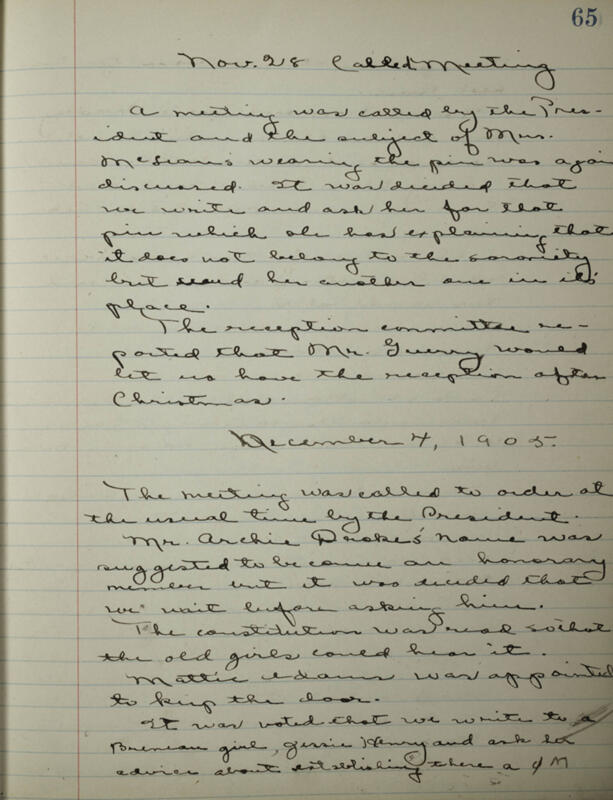 65
Nov. 28 Called Meeting
A meeting was called by the Pres-
ident and the subject of Mrs.
McLean's wearing the pin was again
discussed. It was decided that
we write and ask her for that
pin which she has explaining that
it does not belong to the sorority
but send her another one in its
place.
The reception committee re-
ported that Mr. Guerry would
let us have the reception after
Christmas.
December 4, 1905.
The meeting was called to order at
the usual time by the President.
Mr. Archie Drake's name was
suggested to become an honorary
member but it was decided that
we wait before asking him.
The constitution was read so that
the old girls could hear it.
Mattie Adams was appointed
to keep the door.
It was voted that we write to a
Brenau girl, Jessie Henry and ask her
advice about establishing there a ΦM